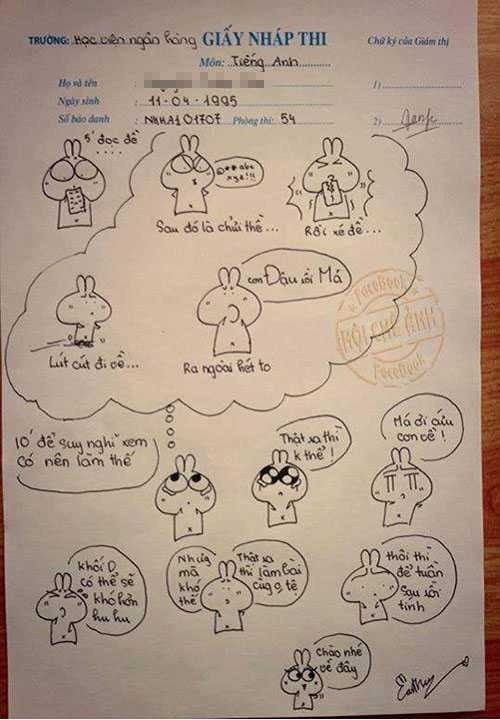 TRƯỜNG: Học viện ngân hàng GIẤY NHÁP THI Chữ ký của Giám thị
Môn: Tiếng Anh
Họ và tên : 1)
Ngày sinh : 11-04-1995
Số báo danh : NHHA101707 Phòng thi: 54 2)
5' đọc đề
@**abc
xyz!!!
Sau đó là chửi thề...
Rồi xé đề...
Lút cút đi về...
con Đậu rồi Má
Ra ngoài hét to
FaceBook
HỘI CHẾ ẢNH
FaceBook
10' để suy nghĩ xem
có nên làm thế
Thật ra thì
k thể!
Má ơi cíu
con về!
khối D
có thể sẽ
khó hơn
hu hu
Nhưng
mà
khó
thế
Thật ra
thì làm bài
cũg o tệ
thôi thì
để tuần
sau rồi
tính
Chào nhé
về đây